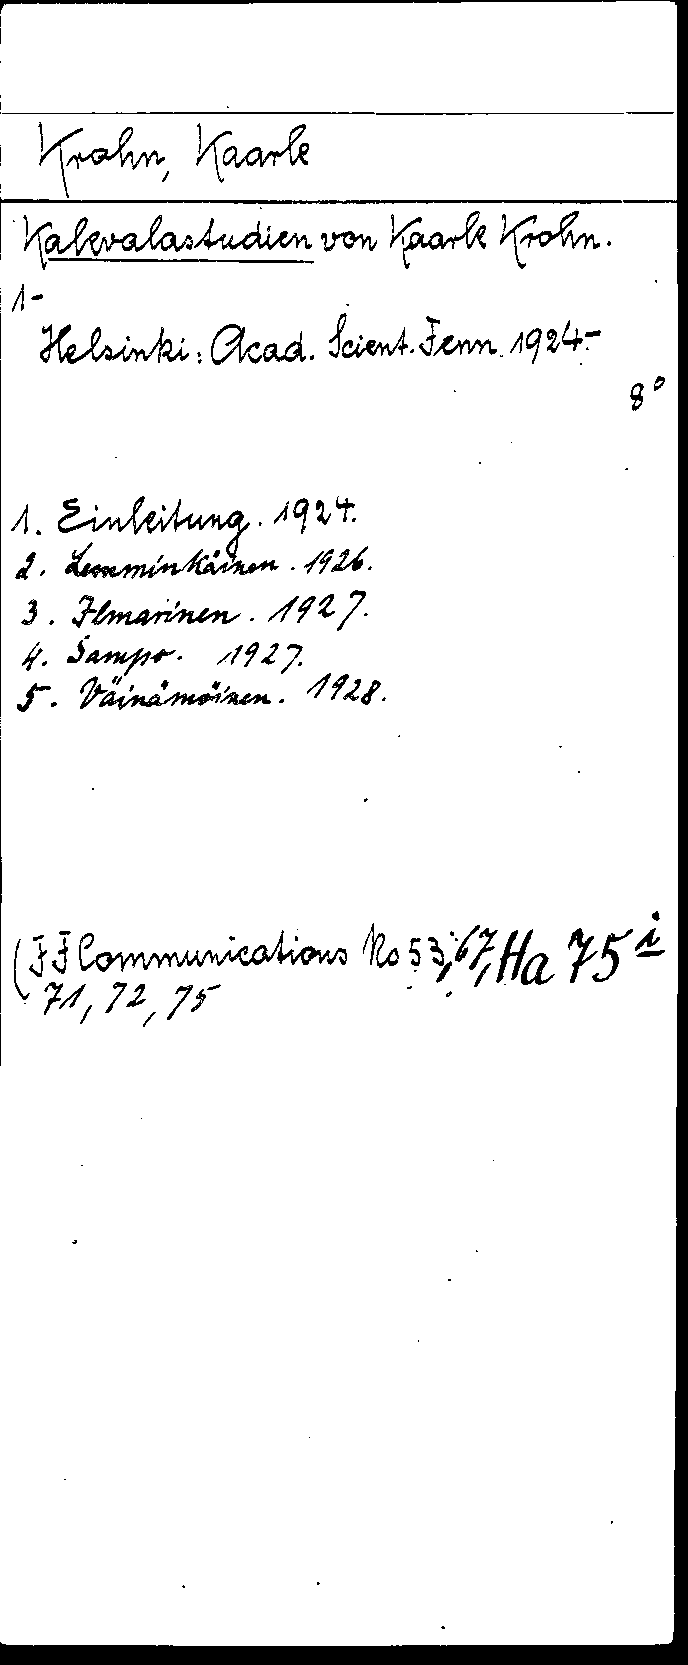 Krohn, Kaarle
Kalevalastudien von Kaarle Krohn.
1-
Helsinki: Acad. Scient. Fenn. 1924-
8°
1. Einleitung. 1924.
2. Lemminkäinen. 1926.
3. Ilmarinen. 1927.
4. Sampo. 1927.
5. Väinämöinen. 1928.
(FF Communications No 53, 67, Ha 75 i
71, 72, 75